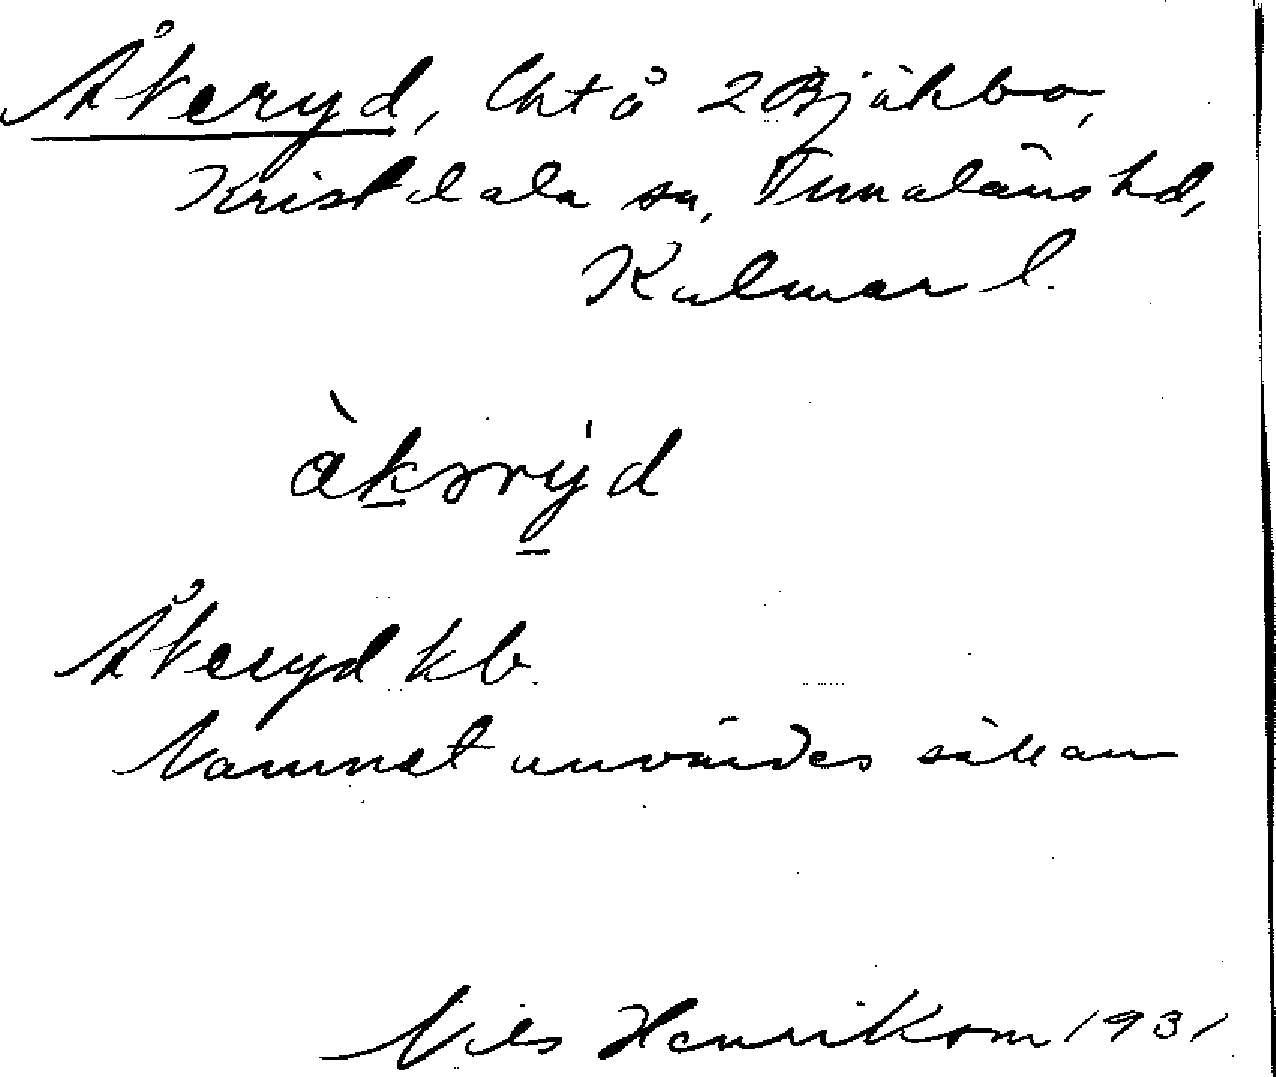 Åkeryd, lht å 2 Bjälebo,
Kristdala sn, Tunaläns hd,
Kalmar l.
àkərýd
Åkeryd kb.
Namnet användes sällan
Nils Henrikson 1931